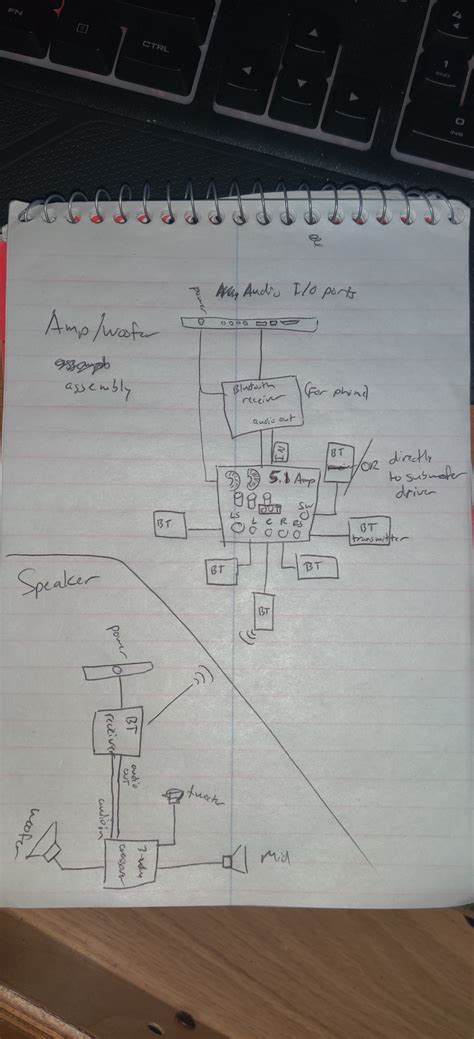 FN
CTRL
4
1
END
0
INS
power
Audio I/O ports
Amp/woofer
assembly
Bluetooth
receiver
(For phone)
audio out
IN
BT
OR directly
to subwoofer
driver
5.1 Amp
OUT
SW
LS L C R RS
BT
BT
transmitter
BT
BT
BT
Speaker
power
BT
receiver
audio
out
audio in
tweeter
woofer
3-way
crossover
Mid